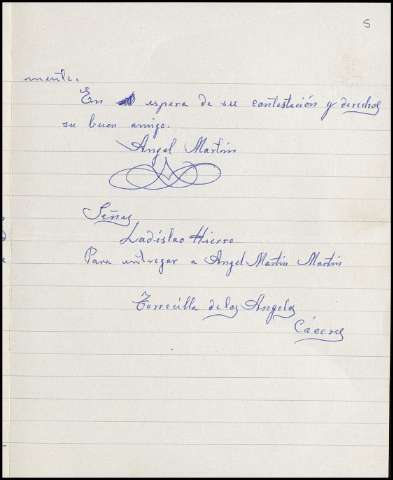 5
mente.
En espera de su contestación y derechos
su buen amigo.
Angel Martin
Señas
Ladislao Hierro
Para entregar a Angel Martin Martin
Torrecilla de los Angeles
Cáceres